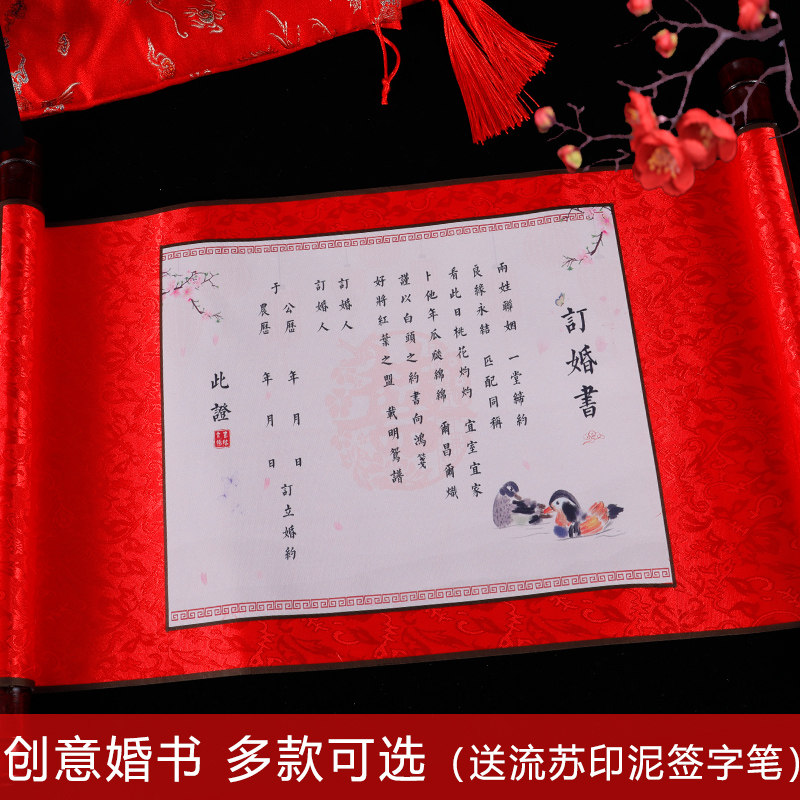 訂婚書
兩姓聯姻 一堂締約
良緣永結 匹配同稱
看此日桃花灼灼 宜室宜家
卜他年瓜瓞綿綿 爾昌爾熾
謹以白頭之約書向鴻箋
好將紅葉之盟 載明鴛譜
訂婚人
訂婚人
公歷 年 月 日
于 訂立婚約
農歷 年 月 日
此證
创意婚书 多款可选（送流苏印泥签字笔）